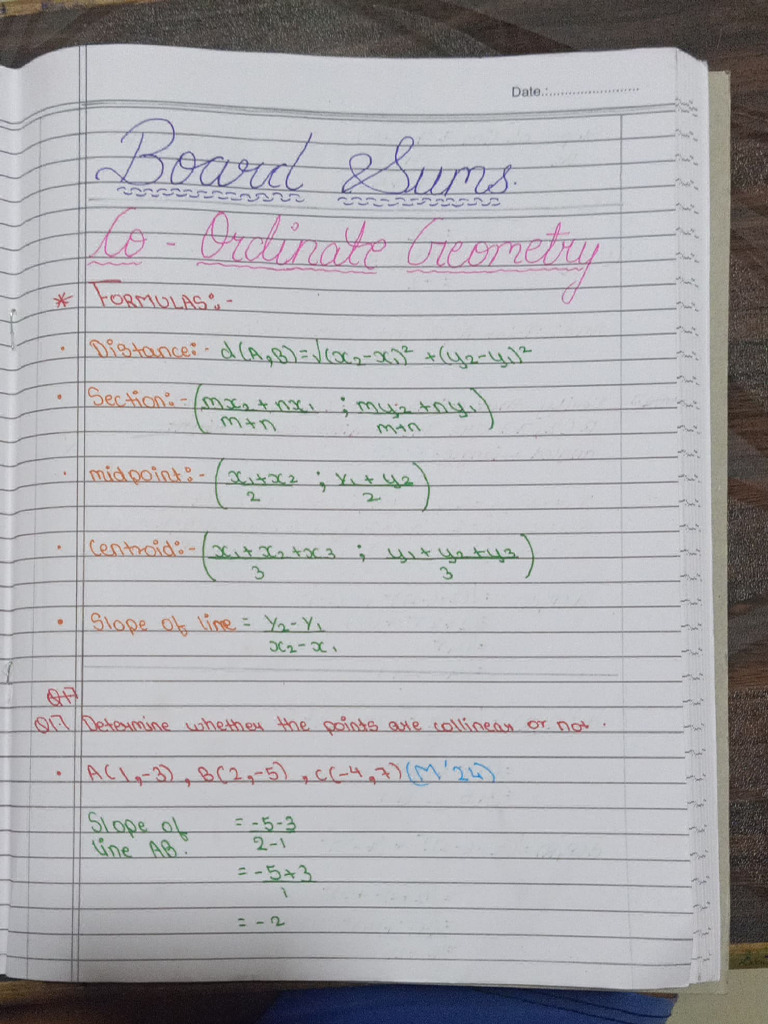 Date.:........................
Board Sums.
Co - Ordinate Geometry
* FORMULAS:-
· Distance:- d(A,B)=√(x₂-x₁)² +(y₂-y₁)²
· Section:- (mx₂+nx₁/m+n ; my₂+ny₁/m+n)
· midpoint:- (x₁+x₂/2 ; y₁+y₂/2)
· Centroid:- (x₁+x₂+x₃/3 ; y₁+y₂+y₃/3)
· Slope of line = y₂-y₁/x₂-x₁
Q17 Determine whether the points are collinear or not.
· A(1,-3), B(2,-5), C(-4,7) (M'24)
Slope of line AB. = -5-3/2-1
= -5+3/1
= -2